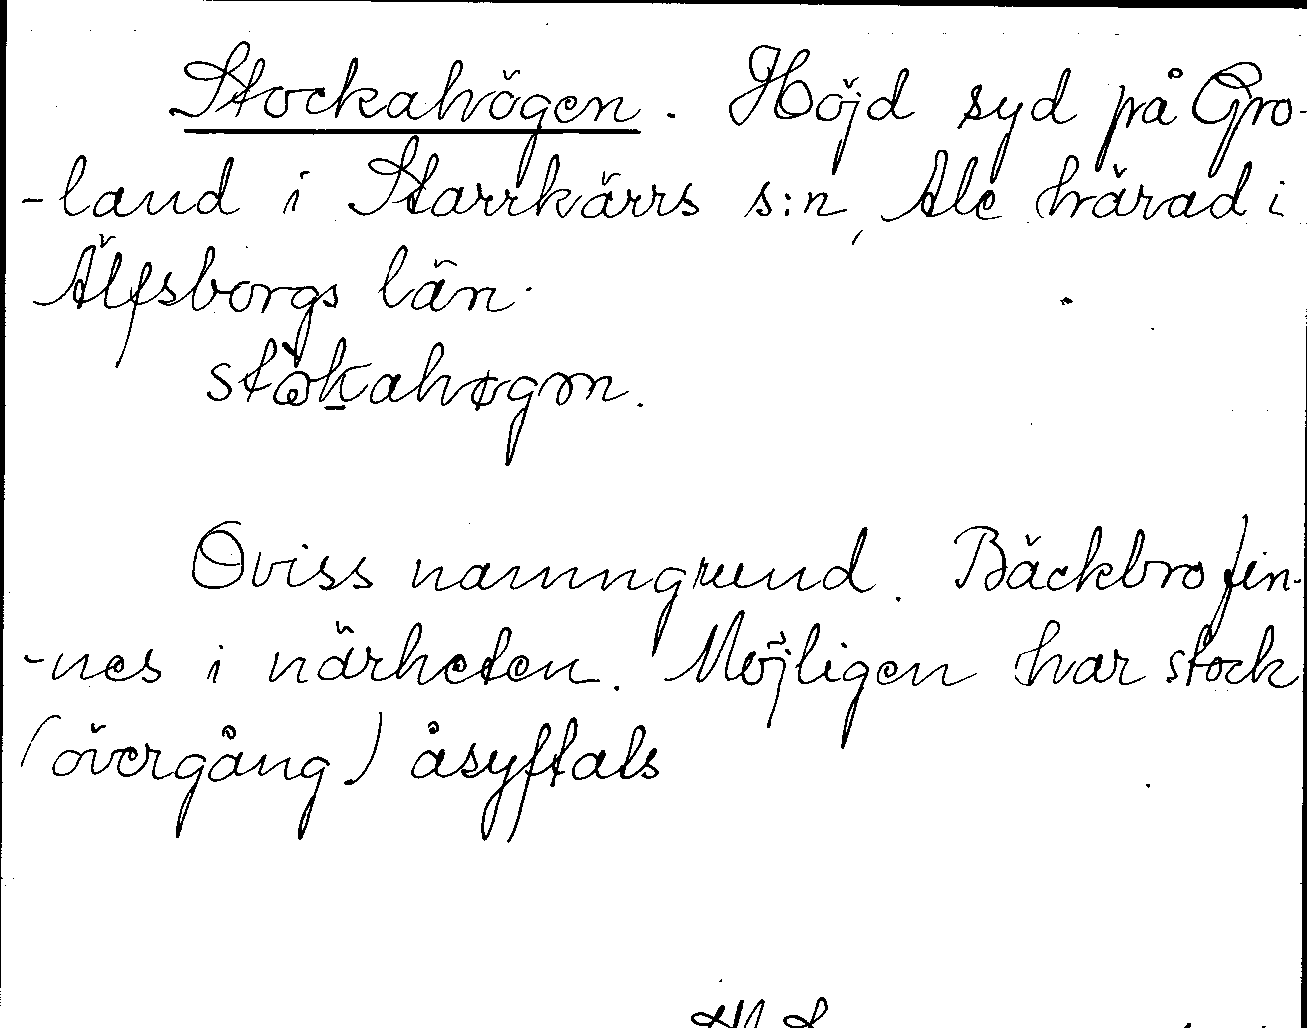 Stockahögen. Höjd syd på Gro-
-land i Starrkärrs s:n, Ale härad i
Älfsborgs län.
stòkahøgɷn.
Oviss namngrund. Bäckbro fin-
-nes i närheten. Möjligen har stock
(övergång) åsyftals